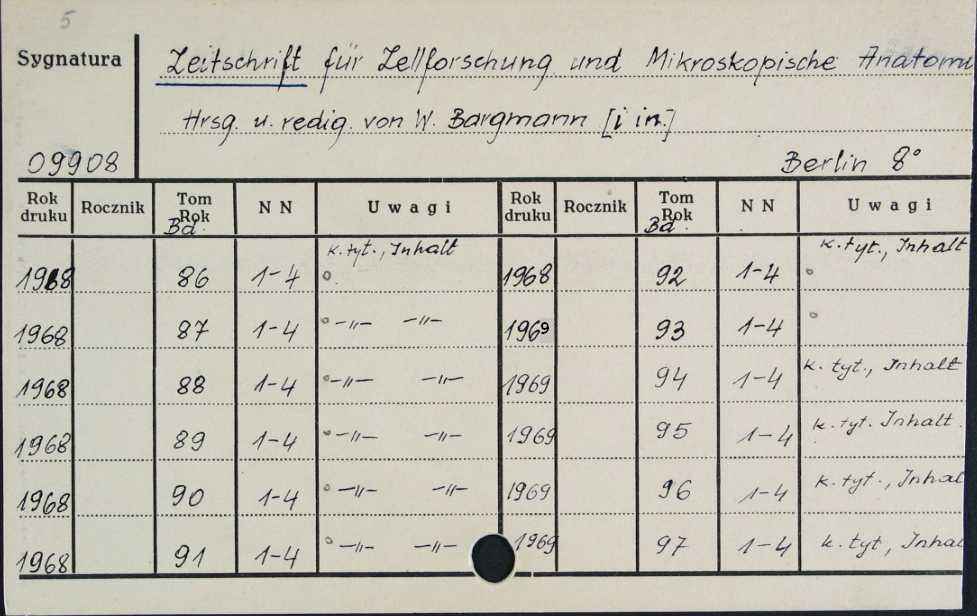 5
Sygnatura
Zeitschrift für Zellforschung und Mikroskopische Anatomi
Hrsg. u. redig. von W. Bargmann [i in.]
09908
Berlin 8°
Rok druku Rocznik Tom Rok Bd. N N Uwagi Rok druku Rocznik Tom Rok Bd. N N Uwagi
k. tyt., Inhalt k. tyt., Inhalt
1968 86 1-4 ° 1968 92 1-4 °
1968 87 1-4 ° -〃- -〃- 1969 93 1-4 °
1968 88 1-4 ° -〃- -〃- 1969 94 1-4 k. tyt., Inhalt
1968 89 1-4 ° -〃- -〃- 1969 95 1-4 k. tyt. Inhalt
1968 90 1-4 ° -〃- -〃- 1969 96 1-4 k. tyt., Inhal
1968 91 1-4 ° -〃- -〃- 1969 97 1-4 k. tyt, Inhal